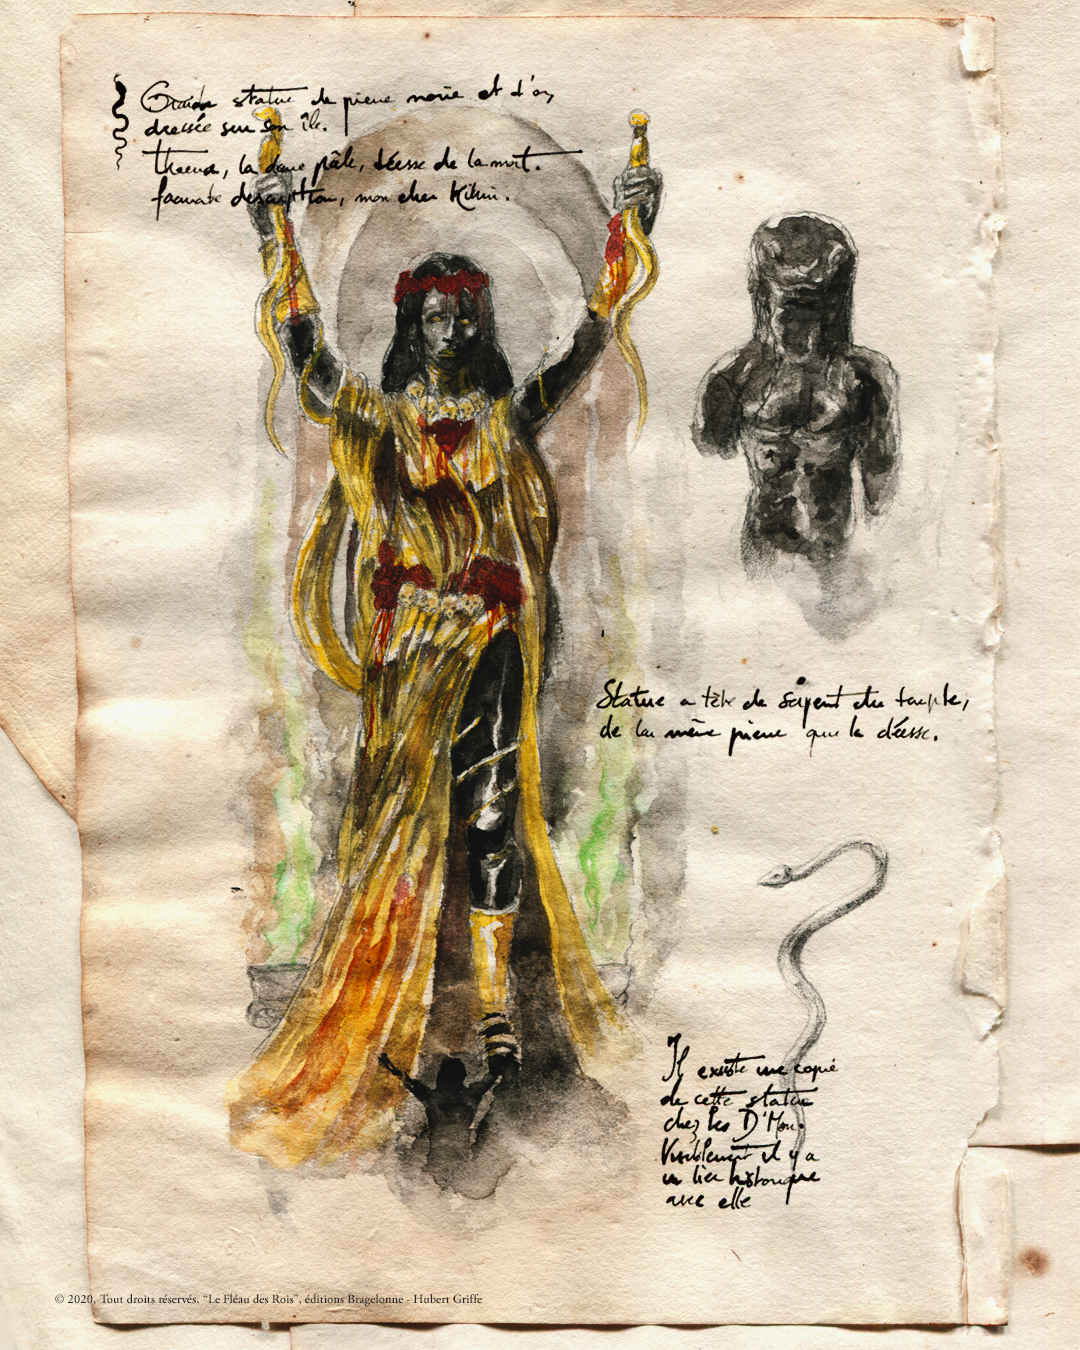 Grande statue de pierre noire et d'or,
dressée sur son île.
la dame pâle, déesse de la mort.
description, mon cher Kilin.
Statue a tête de serpent du temple,
de la même pierre que la déesse.
Il existe une copie
de cette statue
chez les D'Mon.
Visiblement il y a
un lien historique
avec elle
© 2020, Tout droits réservés, “Le Fléau des Rois”, éditions Bragelonne - Hubert Griffe